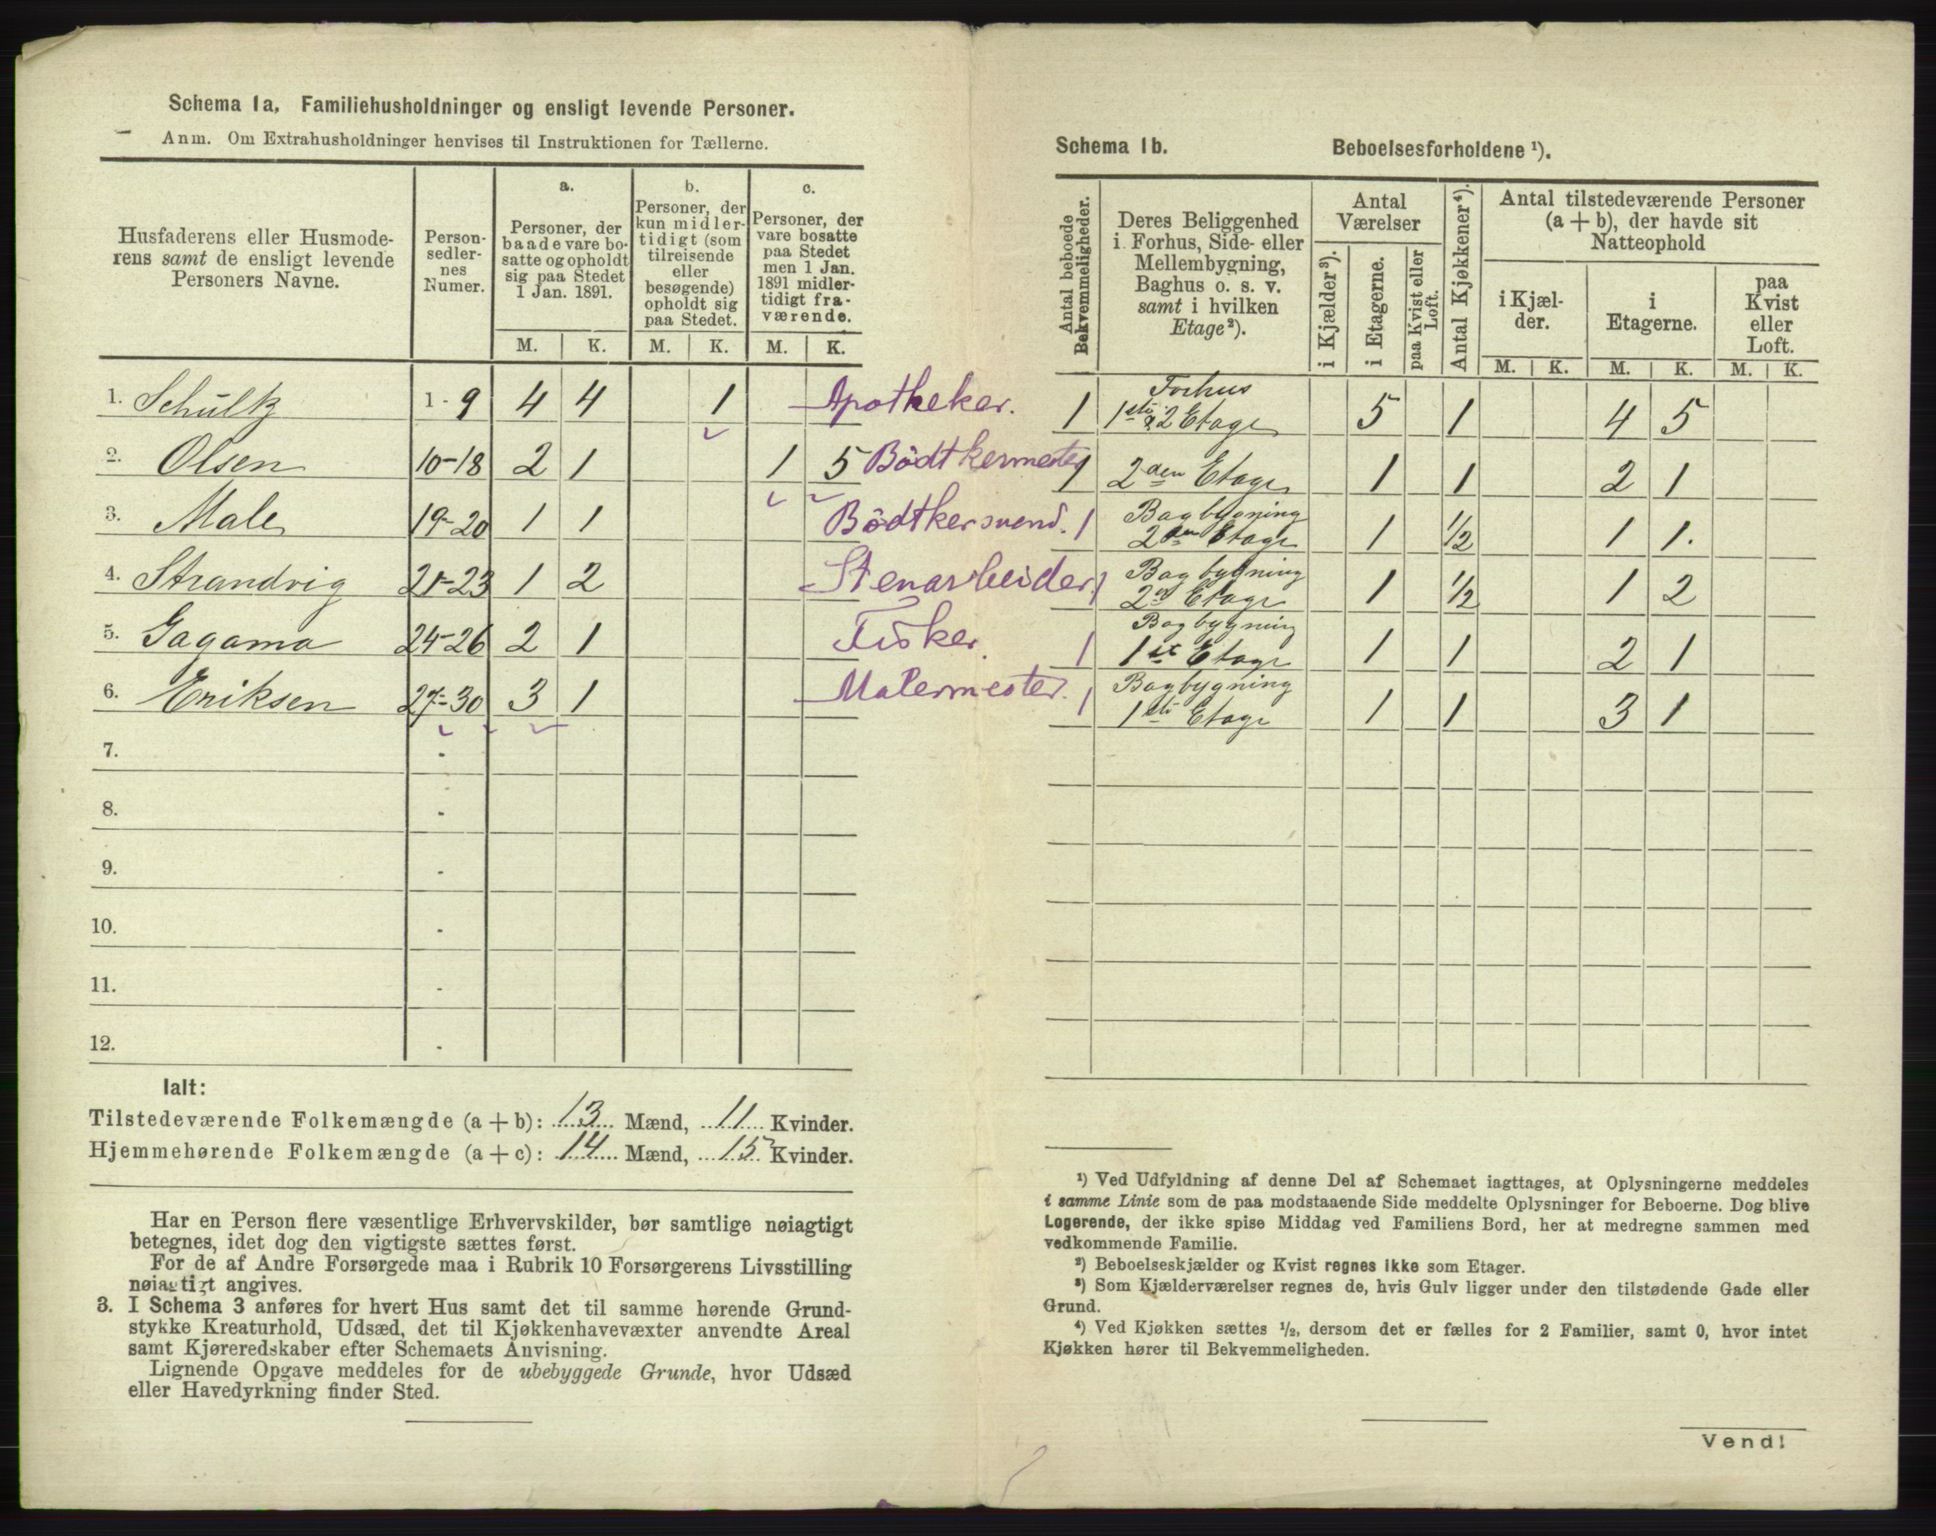 Schema 1a. Familiehusholdninger og ensligt levende Personer.
Anm. Om Extrahusholdninger henvises til Instruktionen for Tællerne.
Husfaderens eller Husmoderens samt de ensligt levende Personers Navne.
Personsedlernes Numer.
a.
Personer, der baade vare bosatte og opholdt sig paa Stedet 1 Jan. 1891.
b.
Personer, der kun midlertidigt (som tilreisende eller besøgende) opholdt sig paa Stedet.
c.
Personer, der vare bosatte paa Stedet men 1 Jan. 1891 midlertidigt fraværende.
M. K. M. K. M. K.
1. Schultz 1-9 4 4 1 Apotheker.
2. Olsen 10-18 2 1 1 5 Bödtkermester
3. Male 19-20 1 1 Bödtkersvend.
4. Strandvig 21-23 1 2 Stenarbeider.
5. Gagama 24-26 2 1 Fisker.
6. Eriksen 27-30 3 1 Malermester.
7. -
8. -
9. -
10. -
11. -
12. -
Ialt:
Tilstedeværende Folkemængde (a + b): 13 Mænd, 11 Kvinder.
Hjemmehørende Folkemængde (a + c): 14 Mænd, 15 Kvinder.
Har en Person flere væsentlige Erhvervskilder, bør samtlige nøiagtigt
betegnes, idet dog den vigtigste sættes først.
For de af Andre Forsørgede maa i Rubrik 10 Forsørgerens Livsstilling
nøiagtigt angives.
3. I Schema 3 anføres for hvert Hus samt det til samme hørende Grund-
stykke Kreaturhold, Udsæd, det til Kjøkkenhavevæxter anvendte Areal
samt Kjøreredskaber efter Schemaets Anvisning.
Lignende Opgave meddeles for de ubebyggede Grunde, hvor Udsæd
eller Havedyrkning finder Sted.
Schema 1b. Beboelsesforholdene ¹).
Antal beboede Bekvemmeligheder.
Deres Beliggenhed i Forhus, Side- eller Mellembygning, Baghus o. s. v. samt i hvilken Etage²).
Antal Værelser
i Kjælder³).
i Etagerne.
paa Kvist eller Loft.
Antal Kjøkkener⁴).
Antal tilstedeværende Personer (a + b), der havde sit Natteophold
i Kjælder.
i Etagerne.
paa Kvist eller Loft.
M. K. M. K. M. K.
1 Forhus
1ste & 2 Etage 5 1 4 5
1 2den Etage 1 1 2 1
1 Bagbygning
2den Etage 1 1/2 1 1.
1 Bagbygning
2n Etage 1 1/2 1 2
1 Bagbygning
1st Etage 1 1 2 1
1 Bagbygning
1ste Etage 1 1 3 1
¹) Ved Udfyldning af denne Del af Schemaet iagttages, at Oplysningerne meddeles
i samme Linie som de paa modstaaende Side meddelte Oplysninger for Beboerne. Dog blive
Logerende, der ikke spise Middag ved Familiens Bord, her at medregne sammen med
vedkommende Familie.
²) Beboelseskjælder og Kvist regnes ikke som Etager.
³) Som Kjælderværelser regnes de, hvis Gulv ligger under den tilstødende Gade eller
Grund.
⁴) Ved Kjøkken sættes ½, dersom det er fælles for 2 Familier, samt 0, hvor intet
Kjøkken hører til Bekvemmeligheden.
Vend!